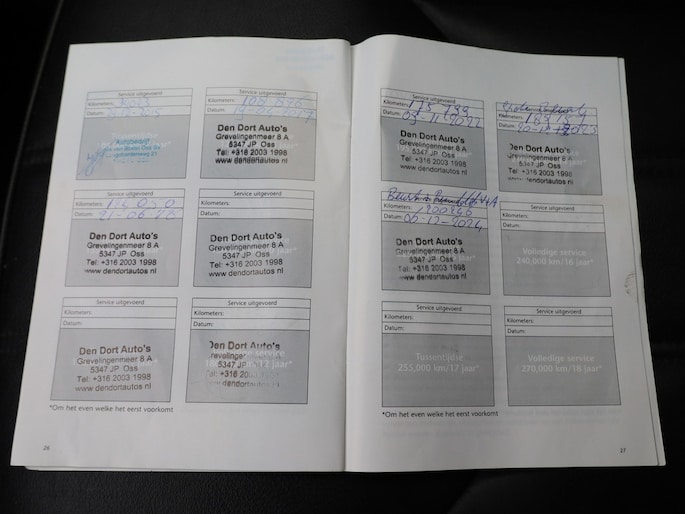 Service uitgevoerd
Kilometers:
Datum:
Autobedrijf
Service uitgevoerd
Kilometers:
Datum:
Den Dort Auto's
Grevelingenmeer 8 A
5347 JP Oss
Tel: +316 2003 1998
www.dendortautos.nl
Service uitgevoerd
Kilometers:
Datum: 21-06-18
Den Dort Auto's
Grevelingenmeer 8 A
5347 JP Oss
Tel: +316 2003 1998
www.dendortautos nl
Service uitgevoerd
Kilometers:
Datum:
Den Dort Auto's
Grevelingenmeer 8 A
5347 JP Oss
Tel: +316 2003 1998
www.dendortautos nl
Service uitgevoerd
Kilometers:
Datum:
Den Dort Auto's
Grevelingenmeer 8 A
5347 JP Oss
Tel: +316 2003 1998
www.dendortautos nl
Service uitgevoerd
Kilometers:
Datum:
Den Dort Auto's
Grevelingenmeer 8 A
5347 JP Oss
Tel: +316 2003 1998
www.dendortautos nl
*Om het even welke het eerst voorkomt
26
Kilometers: 175 799
Datum: 03-11-2022
Den Dort Auto's
Grevelingenmeer 8 A
5347 JP Oss
Tel: +316 2003 1998
www.dendortautos nl
Kilometers:
Datum:
Den Dort Auto's
Grevelingenmeer 8 A
5347 JP Oss
Tel: +316 2003 1998
www.dendortautos nl
Kilometers:
Datum: 05-12-2024
Den Dort Auto's
Grevelingenmeer 8 A
5347 JP Oss
Tel: +316 2003 1998
www.dendortautos nl
Service uitgevoerd
Kilometers:
Datum:
Volledige service
240,000 km/16 jaar*
Service uitgevoerd
Kilometers:
Datum:
Tussentijdse
255,000 km/17 jaar*
Service uitgevoerd
Kilometers:
Datum:
Volledige service
270,000 km/18 jaar*
*Om het even welke het eerst voorkomt
27